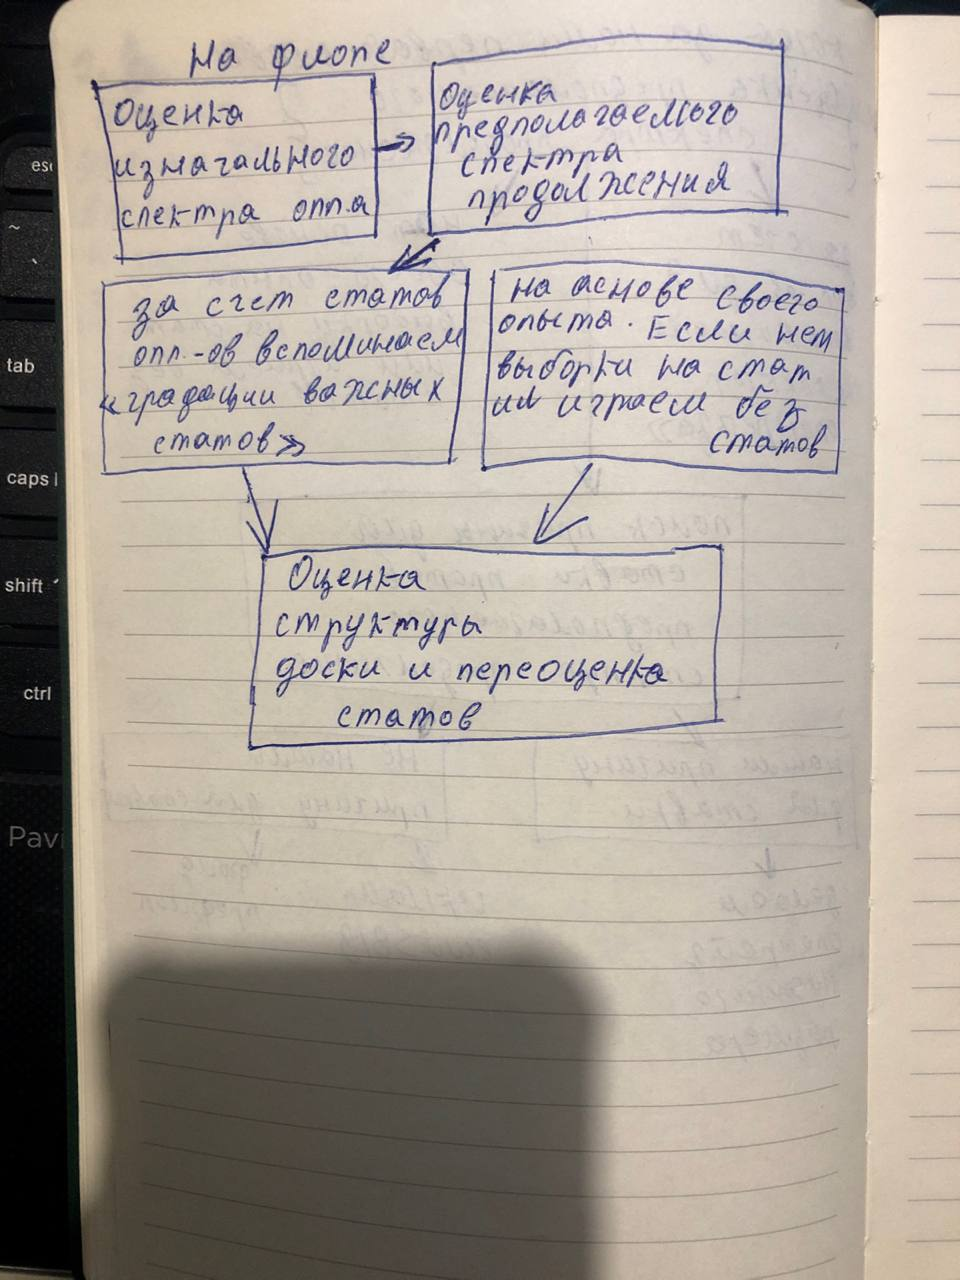 На флопе
Оценка
изначального
спектра опп.а
Оценка
предполагаемого
спектра
продолжения
за счет статов
опп.-ов вспоминаем
«градации важных
статов»
на основе своего
опыта. Если нет
выборки на стат
или играем без
статов
Оценка
структуры
доски и переоценка
статов
esc
~
tab
caps l
shift
ctrl
Pavi